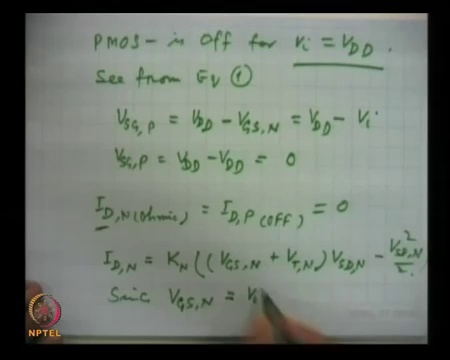 PMOS - is Off for Vi = VDD.
See from Eq ①
VSG,P = VDD - VGS,N = VDD - Vi
VSG,P = VDD - VDD = 0
ID,N(ohmic) = ID,P(OFF) = 0
ID,N = KN((VGS,N + VT,N) VSD,N - VSD,N²/2.
Sinc VGS,N = V
NPTEL